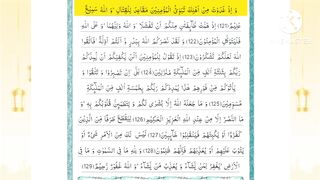 وَ اِذْ غَدَوْتَ مِنْ اَهْلِكَ تُبَوِّئُ الْمُؤْمِنِیْنَ مَقَاعِدَ لِلْقِتَالِ وَ اللّٰهُ سَمِیْعٌ
عَلِیْمٌ(121) اِذْ هَمَّتْ طَّآىٕفَتٰنِ مِنْكُمْ اَنْ تَفْشَلَا وَ اللّٰهُ وَلِیُّهُمَا وَ عَلَى اللّٰهِ
فَلْیَتَوَكَّلِ الْمُؤْمِنُوْنَ(122) وَ لَقَدْ نَصَرَكُمُ اللّٰهُ بِبَدْرٍ وَّ اَنْتُمْ اَذِلَّةٌ فَاتَّقُوا
اللّٰهَ لَعَلَّكُمْ تَشْكُرُوْنَ(123) اِذْ تَقُوْلُ لِلْمُؤْمِنِیْنَ اَلَنْ یَّكْفِیَكُمْ اَنْ یُّمِدَّكُمْ
رَبُّكُمْ بِثَلٰثَةِ اٰلٰفٍ مِّنَ الْمَلٰٓىٕكَةِ مُنْزَلِیْنَ(124) بَلٰۤى اِنْ تَصْبِرُوْا وَ تَتَّقُوْا وَ
یَاْتُوْكُمْ مِّنْ فَوْرِهِمْ هٰذَا یُمْدِدْكُمْ رَبُّكُمْ بِخَمْسَةِ اٰلٰفٍ مِّنَ الْمَلٰٓىٕكَةِ
مُسَوِّمِیْنَ(125) وَ مَا جَعَلَهُ اللّٰهُ اِلَّا بُشْرٰى لَكُمْ وَ لِتَطْمَىٕنَّ قُلُوْبُكُمْ بِهٖ وَ
مَا النَّصْرُ اِلَّا مِنْ عِنْدِ اللّٰهِ الْعَزِیْزِ الْحَكِیْمِ(126) لِیَقْطَعَ طَرَفًا مِّنَ الَّذِیْنَ
كَفَرُوْۤا اَوْ یَكْبِتَهُمْ فَیَنْقَلِبُوْا خَآىٕبِیْنَ(127) لَیْسَ لَكَ مِنَ الْاَمْرِ شَیْءٌ اَوْ
یَتُوْبَ عَلَیْهِمْ اَوْ یُعَذِّبَهُمْ فَاِنَّهُمْ ظٰلِمُوْنَ(128) وَ لِلّٰهِ مَا فِی السَّمٰوٰتِ وَ مَا فِی
الْاَرْضِ یَغْفِرُ لِمَنْ یَّشَآءُ وَ یُعَذِّبُ مَنْ یَّشَآءُ وَ اللّٰهُ غَفُوْرٌ رَّحِیْمٌ(129)